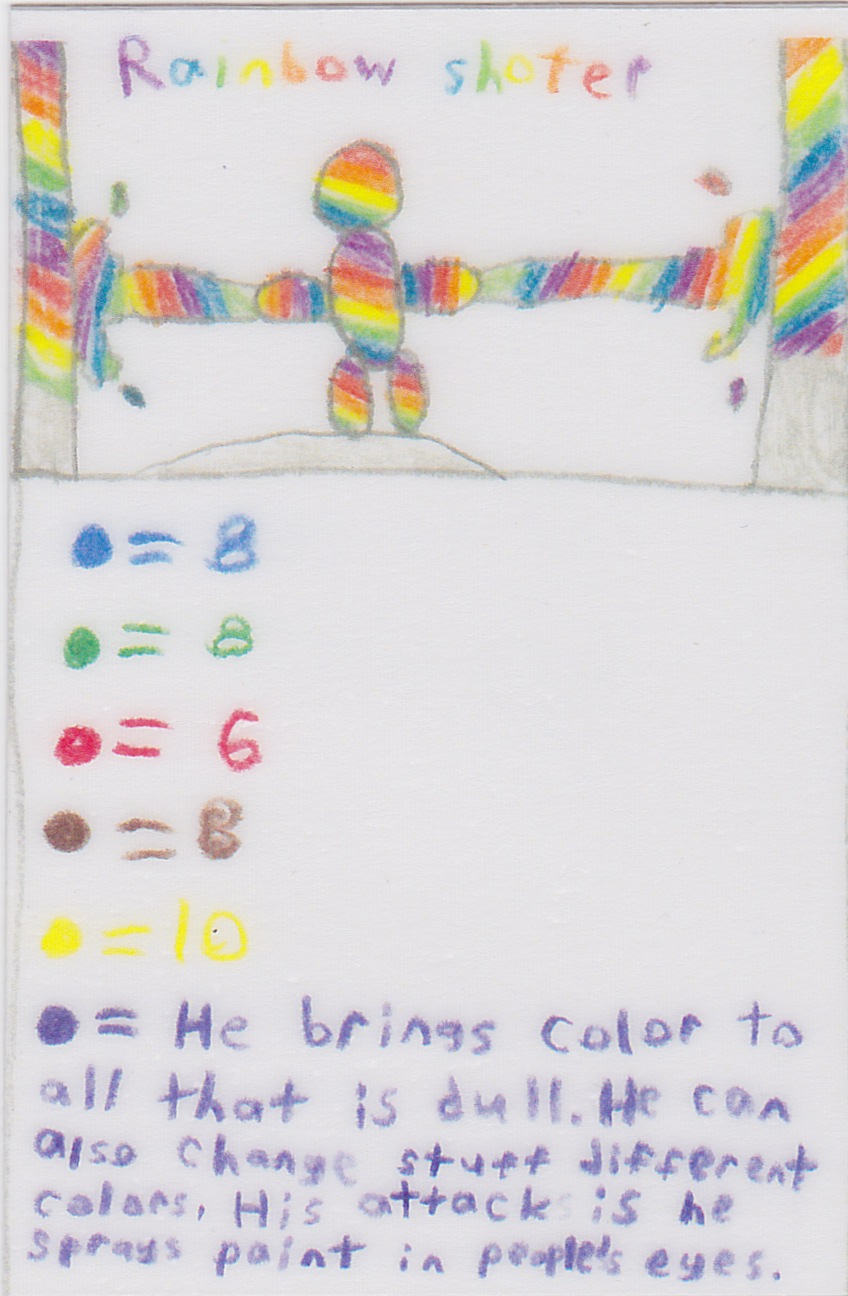 Rainbow shoter
= 8
= 8
= 6
= 8
= 10
= He brings color to
all that is dull. He can
also change stuff different
colors. His attacks is he
sprays paint in people's eyes.